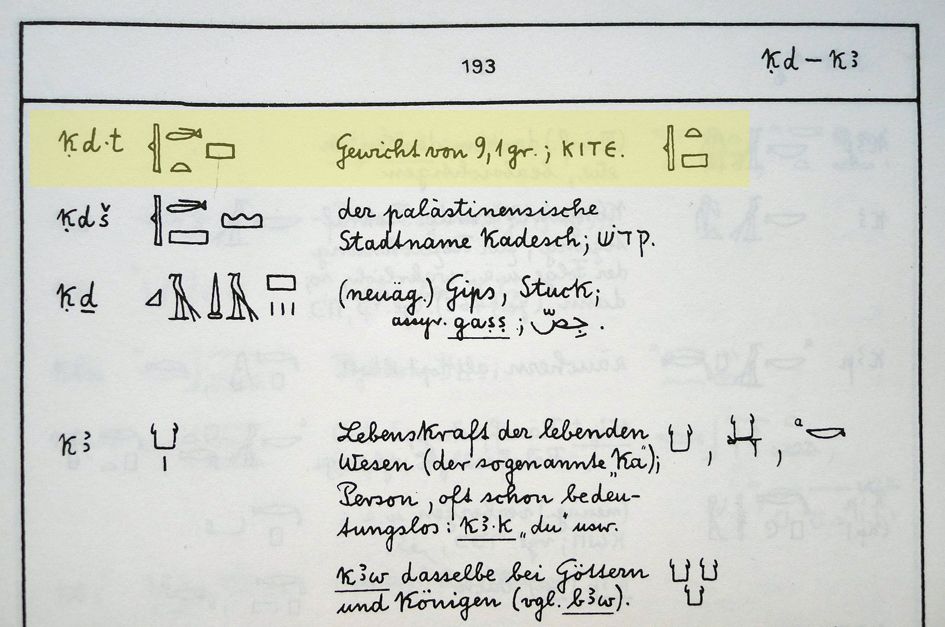 193 ḳd – k3
ḳd·t Gewicht von 9,1 gr.; KITE.
ḳdš der palästinensische
Stadtname Kadesch; קדש.
ḳḏ (neuäg.) Gips, Stuck;
assyr. gaṣṣ ; جصّ.
k3 Lebenskraft der lebenden
Wesen (der sogenannte „Ka“);
Person, oft schon bedeu-
tungslos: k3·k „du“ usw.
k3w dasselbe bei Göttern
und Königen (vgl. b3w).